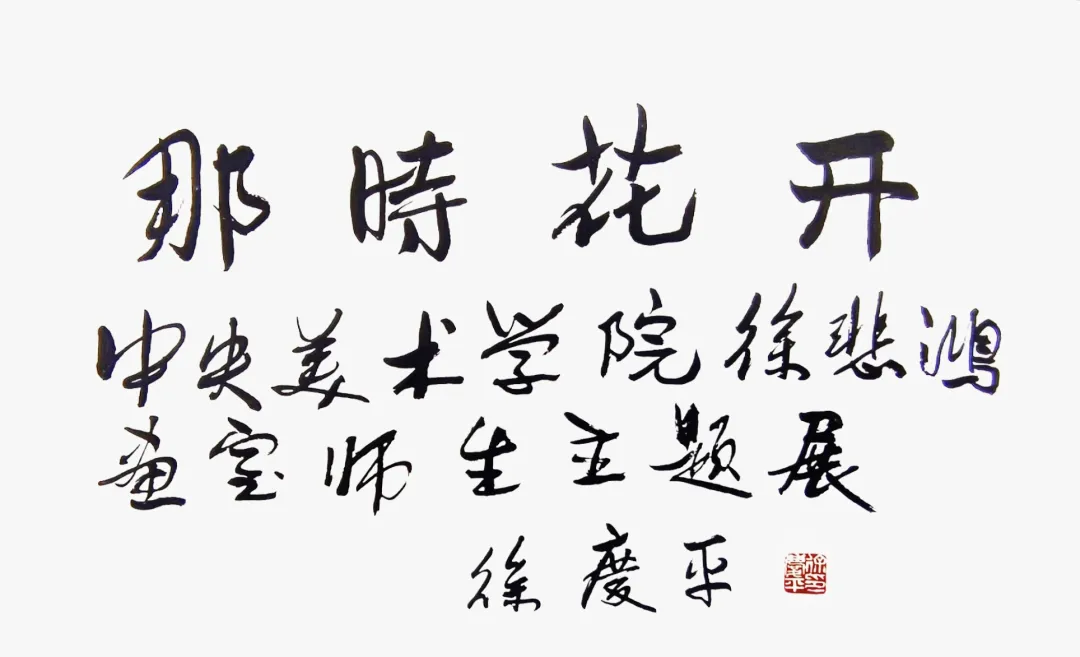 那時花开
中央美术学院徐悲鸿
畫室师生主题展
徐慶平